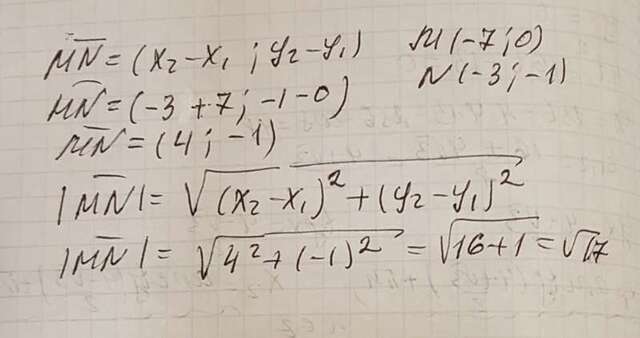 MN = (x₂ - x₁ ; y₂ - y₁) M (-7; 0)
MN = (-3 + 7; -1 - 0) N (-3; -1)
MN = (4; -1)
|MN| = √(x₂ - x₁)² + (y₂ - y₁)²
|MN| = √4² + (-1)² = √16 + 1 = √17